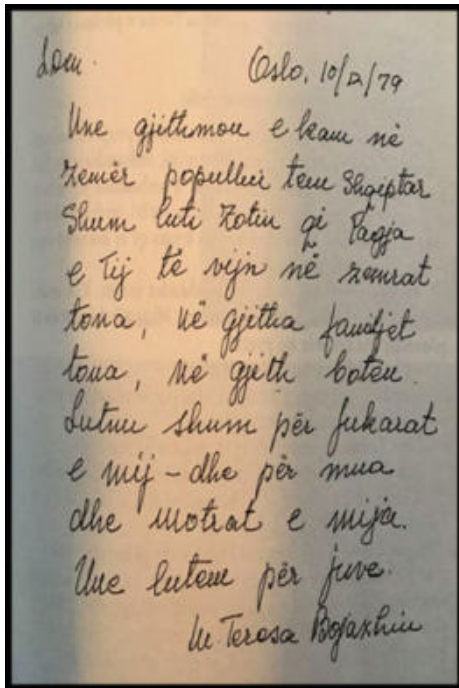 Oslo, 10/12/79
Une gjithmon e kam në
zemër popullin tem Shqiptar
Shum luti Zotin qi Paqja
e Tij të vijn në zemrat
tona, në gjitha familjet
tona, në gjith boten.
Lutnu shum për fukarat
e mij – dhe për mua
dhe motrat e mija.
Une lutem për juve.
M. Teresa Bojaxhiu